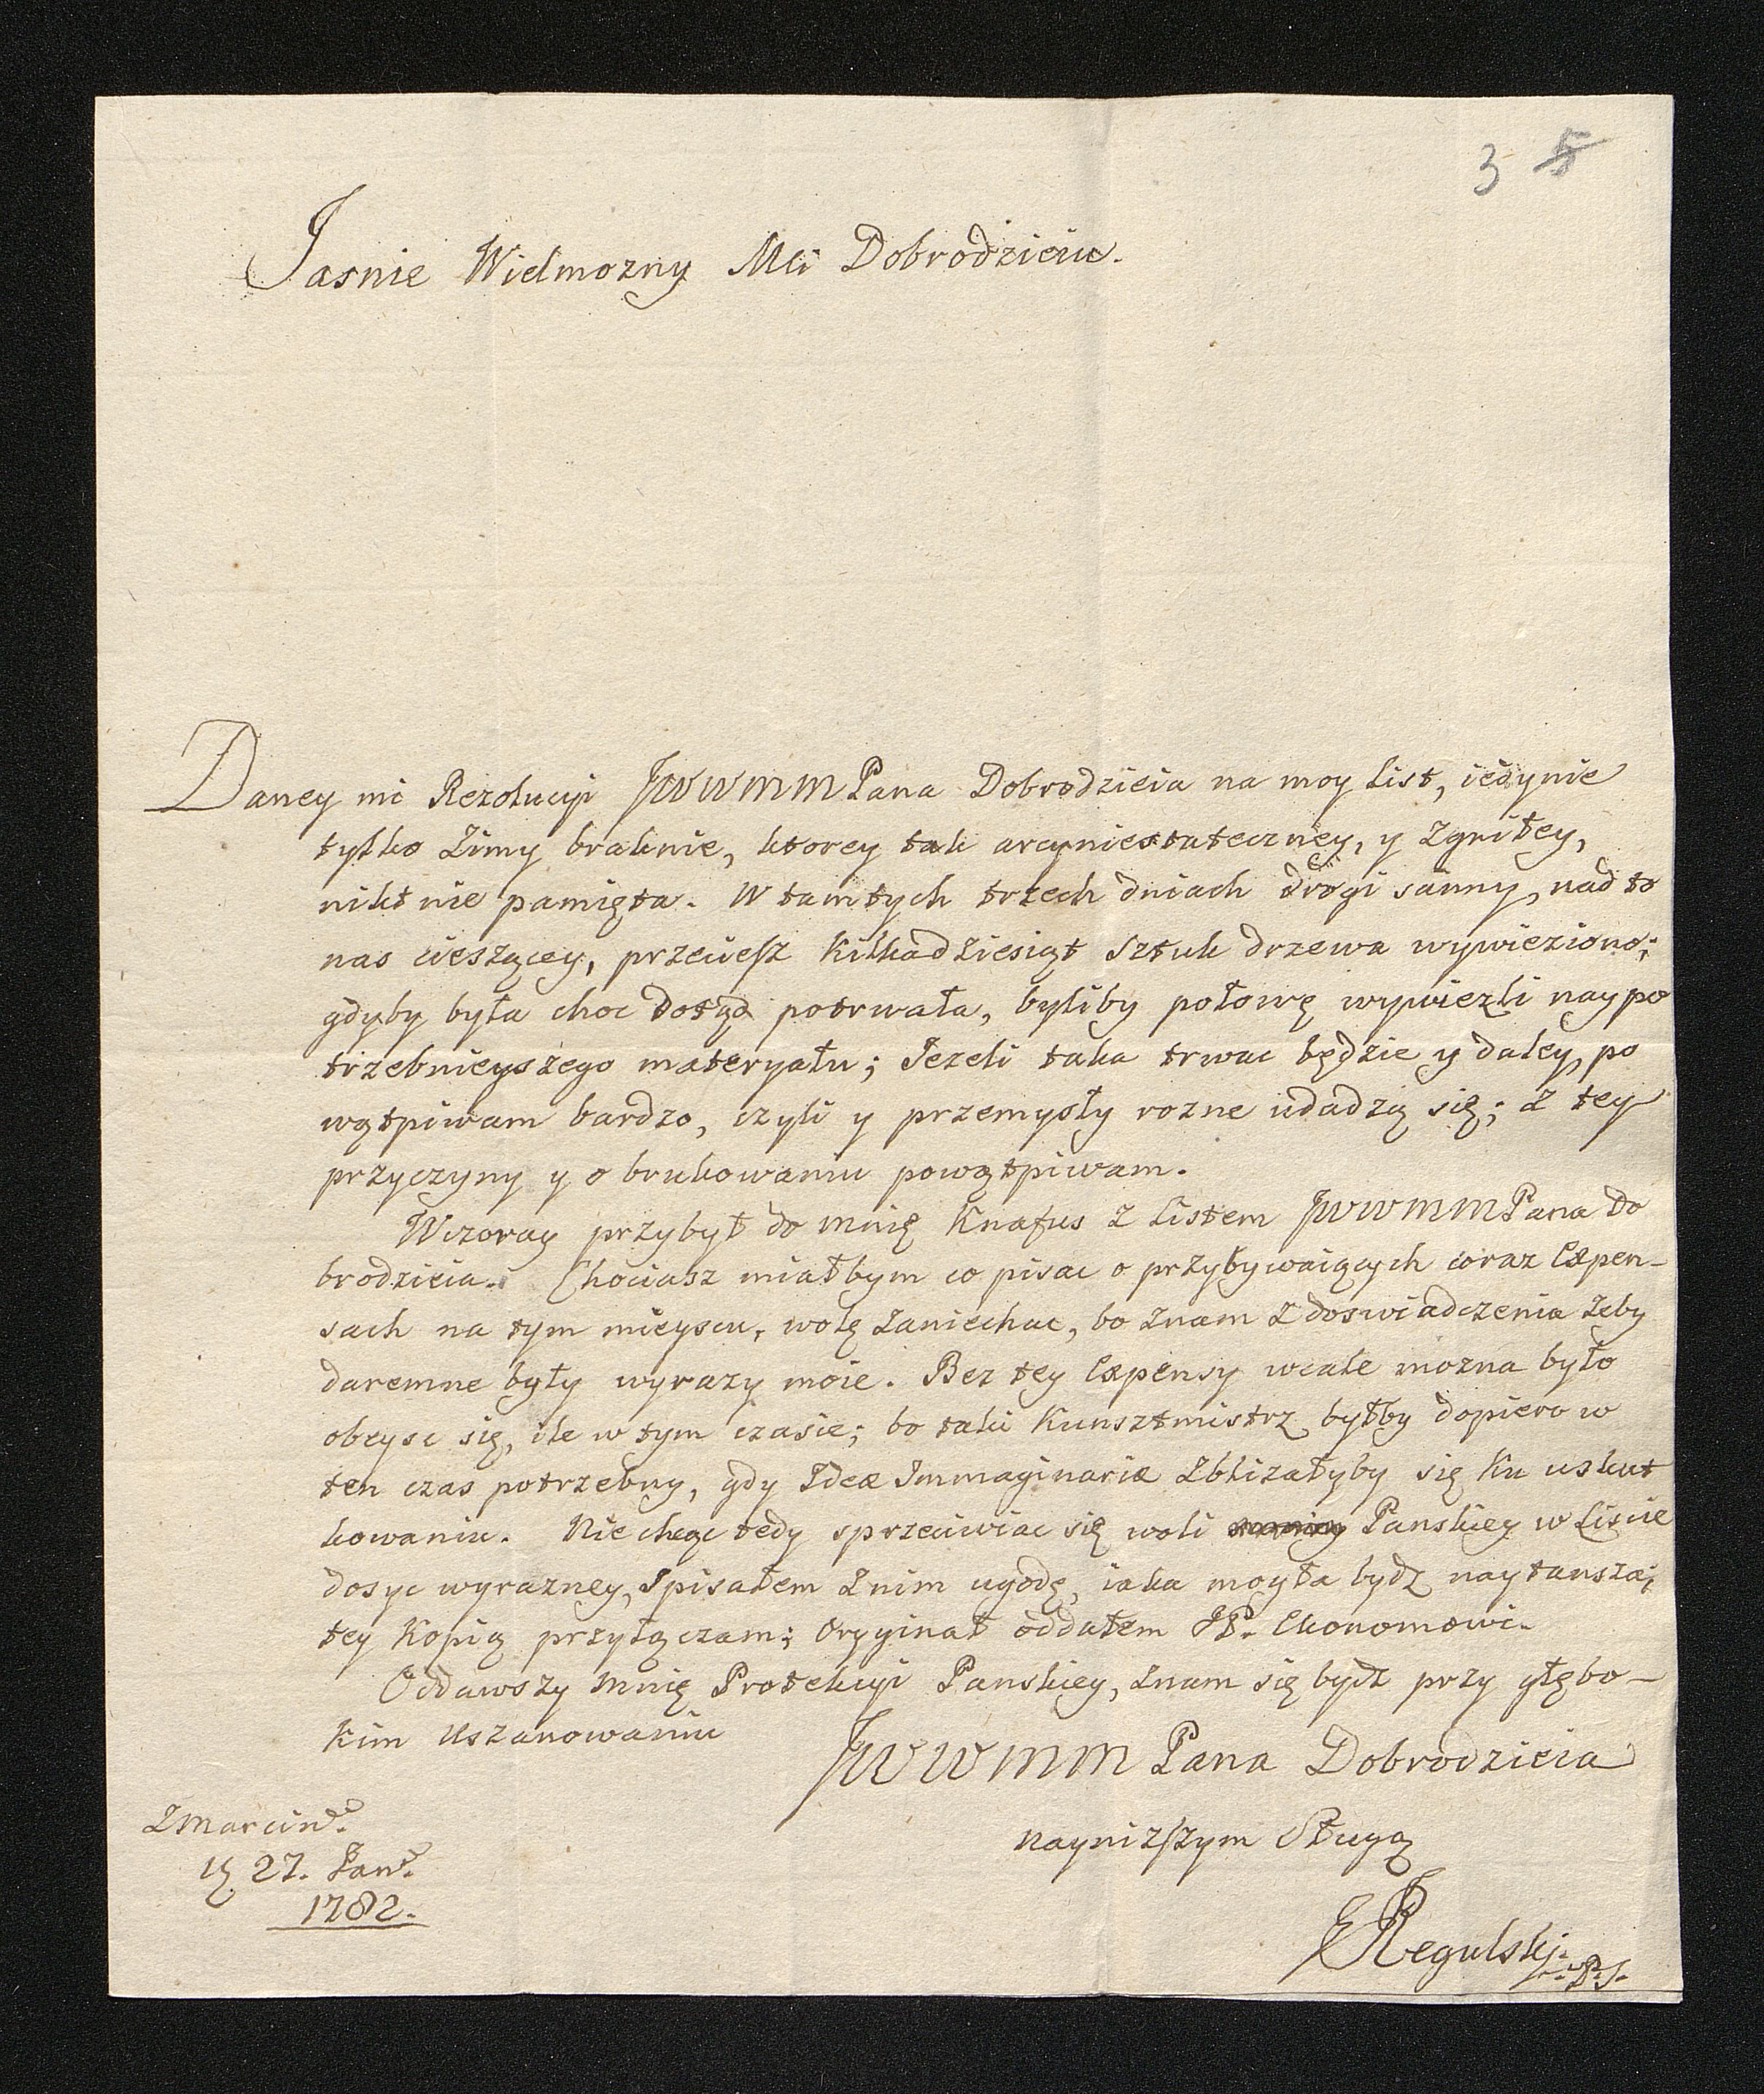 3 5
Jasnie Wielmozny Mci Dobrodzieiu.
Daney mi Rezolucyi JWWMM Pana Dobrodzieia na moy List, iedynie
tylko Zimy braknie, ktorey tak arcyniestateczney, y Zgniłey,
nikt nie pamięta. W tamtych trzech dniach drogi sanny, nad to
nas cieszącey, przecieſz kilkadziesiąt sztuk drzewa wywieziono;
gdyby była choc dotąd potrwała, byliby połowę wywiezli naypo
trzebnieyszego materyału; Jezeli taka trwac będzie y daley, po
wątpiwam bardzo, czyli y przemysły rozne udadzą się; z tey
przyczyny y o brukowaniu powątpiwam.
Wczoray przybył do mnię Knafus z Listem JWWMM Pana Do
brodzieia. Chociasz miałbym co pisac o przybywaiących coraz Expen-
sach na tym mieyscu, wolę zaniechac, bo znam z doswiadczenia zeby
daremne były wyrazy moie. Bez tey Expensy wcale mozna było
obeysc się, ile w tym czasie; bo taki Kunsztmistrz byłby dopiero w
ten czas potrzebny, gdy Ideæ Immaginariæ zblizałyby się ku uskut
kowaniu. Nie chcąc tedy sprzeciwiac się woli Panskiey w Liscie
dosyc wyrazney, spisałem z nim ugodę, iaka mogła bydz naytansza;
tey Kopią przyłączam; Oryginał oddałem JP. Ekonomowi.
Oddawszy mnię Protekcyi Panskiey, znam się bydz przy głębo-
kim Uszanowaniu
JWWMM Pana Dobrodzieia
nayniżſzym Sługą
E Regulskj
Z Marcind.
27. Jan.
1782.